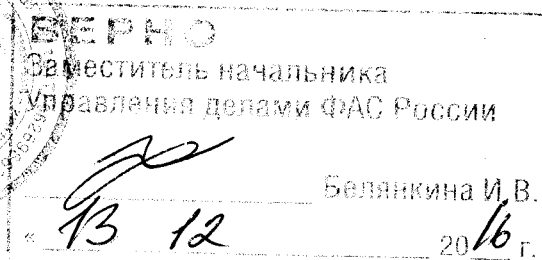 ВЕРНО
Заместитель начальника
Управления делами ФАС России
Белянкина И.В.
« 13 12 2016 г.